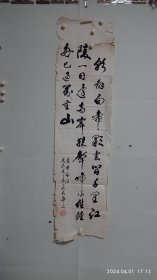 朝辞白帝彩云间千里江
陵一日还两岸猿声啼不住轻
舟已过万重山
2024.04.01 17:13